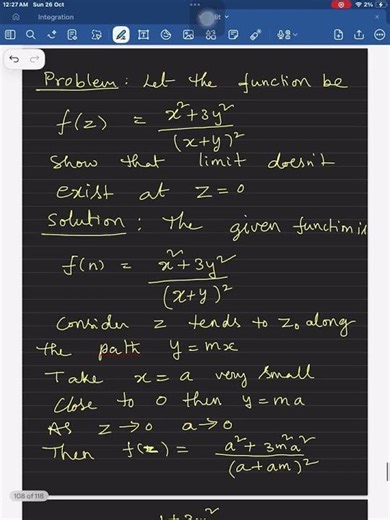 12:27 AM Sun 26 Oct
2%
Integration
Problem: Let the function be
f(z) = x²+3y² / (x+y)²
Show that limit doesn't
exist at z=0
Solution: The given function is
f(n) = x²+3y² / (x+y)²
Consider z tends to z₀ along
the path y=mx
Take x=a very small
close to 0 then y=ma
As z→0 a→0
Then f(z) = a²+3m²a² / (a+am)²
108 of 118